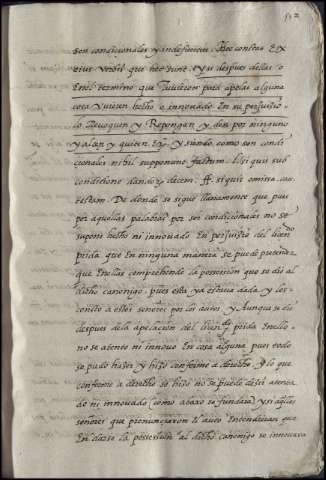 512
son condicionales y indefinitas. Hoc constat Ex
eius verbis que nec sunt. ey si despues dellas o
En el termino que tuvieron para apelar alguna
cosa Vuieren hecho o innovado En su perjuisio
lo Revoquen y Repongan y den por ninguno
y alçen y quiten. Ex. y siendo como son condi
cionales nihil supponunt factum. Vbi qui sub
conditione
De donde se sigue llanamente que pues
por aquellas palabras por ser condicionales no se
supone hecho ni innovado En perjuisio del licendo
prida que En ninguna manera se puede pretender
que En ellas comprehende la possession que se dio al
dicho canonigo pues esta ya estaua dada y les
consto a estos señores por los autos y Aunque se dio
despues de la apelacion del licendo prida En ello
no se atento ni innovo En cosa alguna pues todo
se pudo haser y hiso conforme a derecho y lo que
conforme a derecho se hiso no se puede desir atenta
do ni innovado (como abaxo se fundara) y si aqllos
señores que pronunciaron el auto Entendieran que
En darse la possession al dicho canonigo se innovara